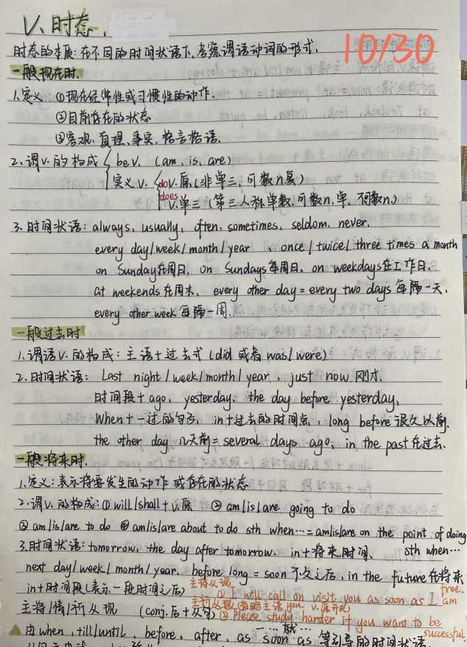 V.时态.
10/30
时态的本质:在不同的时间状语下,考察谓语动词的形式.
一般现在时.
1.定义 ①现在经常性或习惯性的动作.
②目前存在的状态
③客观真理,事实,格言格语.
2.谓V.的构成 be V. (am, is, are)
实义V. do V.原(非单三,可数n.复)
does V.单三(第三人称单数,可数n.单,不可数n.)
3.时间状语: always, usually, often, sometimes, seldom, never.
every day/week/month/year , once/twice/three times a month
on Sunday在周日, on Sundays每周日, on weekdays在工作日,
at weekends在周末, every other day = every two days 每隔一天.
every other week 每隔一周.
一般过去时
1.谓语V.的构成: 主语+过去式(did 或者 was/were)
2.时间状语: Last night/week/month/year , just now 刚才.
时间段+ago, yesterday, the day before yesterday,
When+一过的句子, in+过去的时间点, long before 很久以前,
the other day 几天前 = several days ago, in the past在过去.
一般将来时
1.定义: 表示将要发生的动作或存在的状态
2.谓V.的构成: ① will/shall+V.原 ② am/is/are going to do
③ am/is/are to do ④ am/is/are about to do sth when…= am/is/are on the point of doing
sth when…
3.时间状语: tomorrow, the day after tomorrow, in+将来时间,
next day/week/month/year. before long = soon 不久之后, in the future在将来
in+时间段(表示一段时间之后) 主将从现
① I will call on visit you as soon as I am free.
主将/情/祈从现 (conj.后+从句)
主祈从现(
you. V.原开头) ② Please study harder if you want to be successful.
由when, till/until, before, after, as soon as 等引导的时间状语